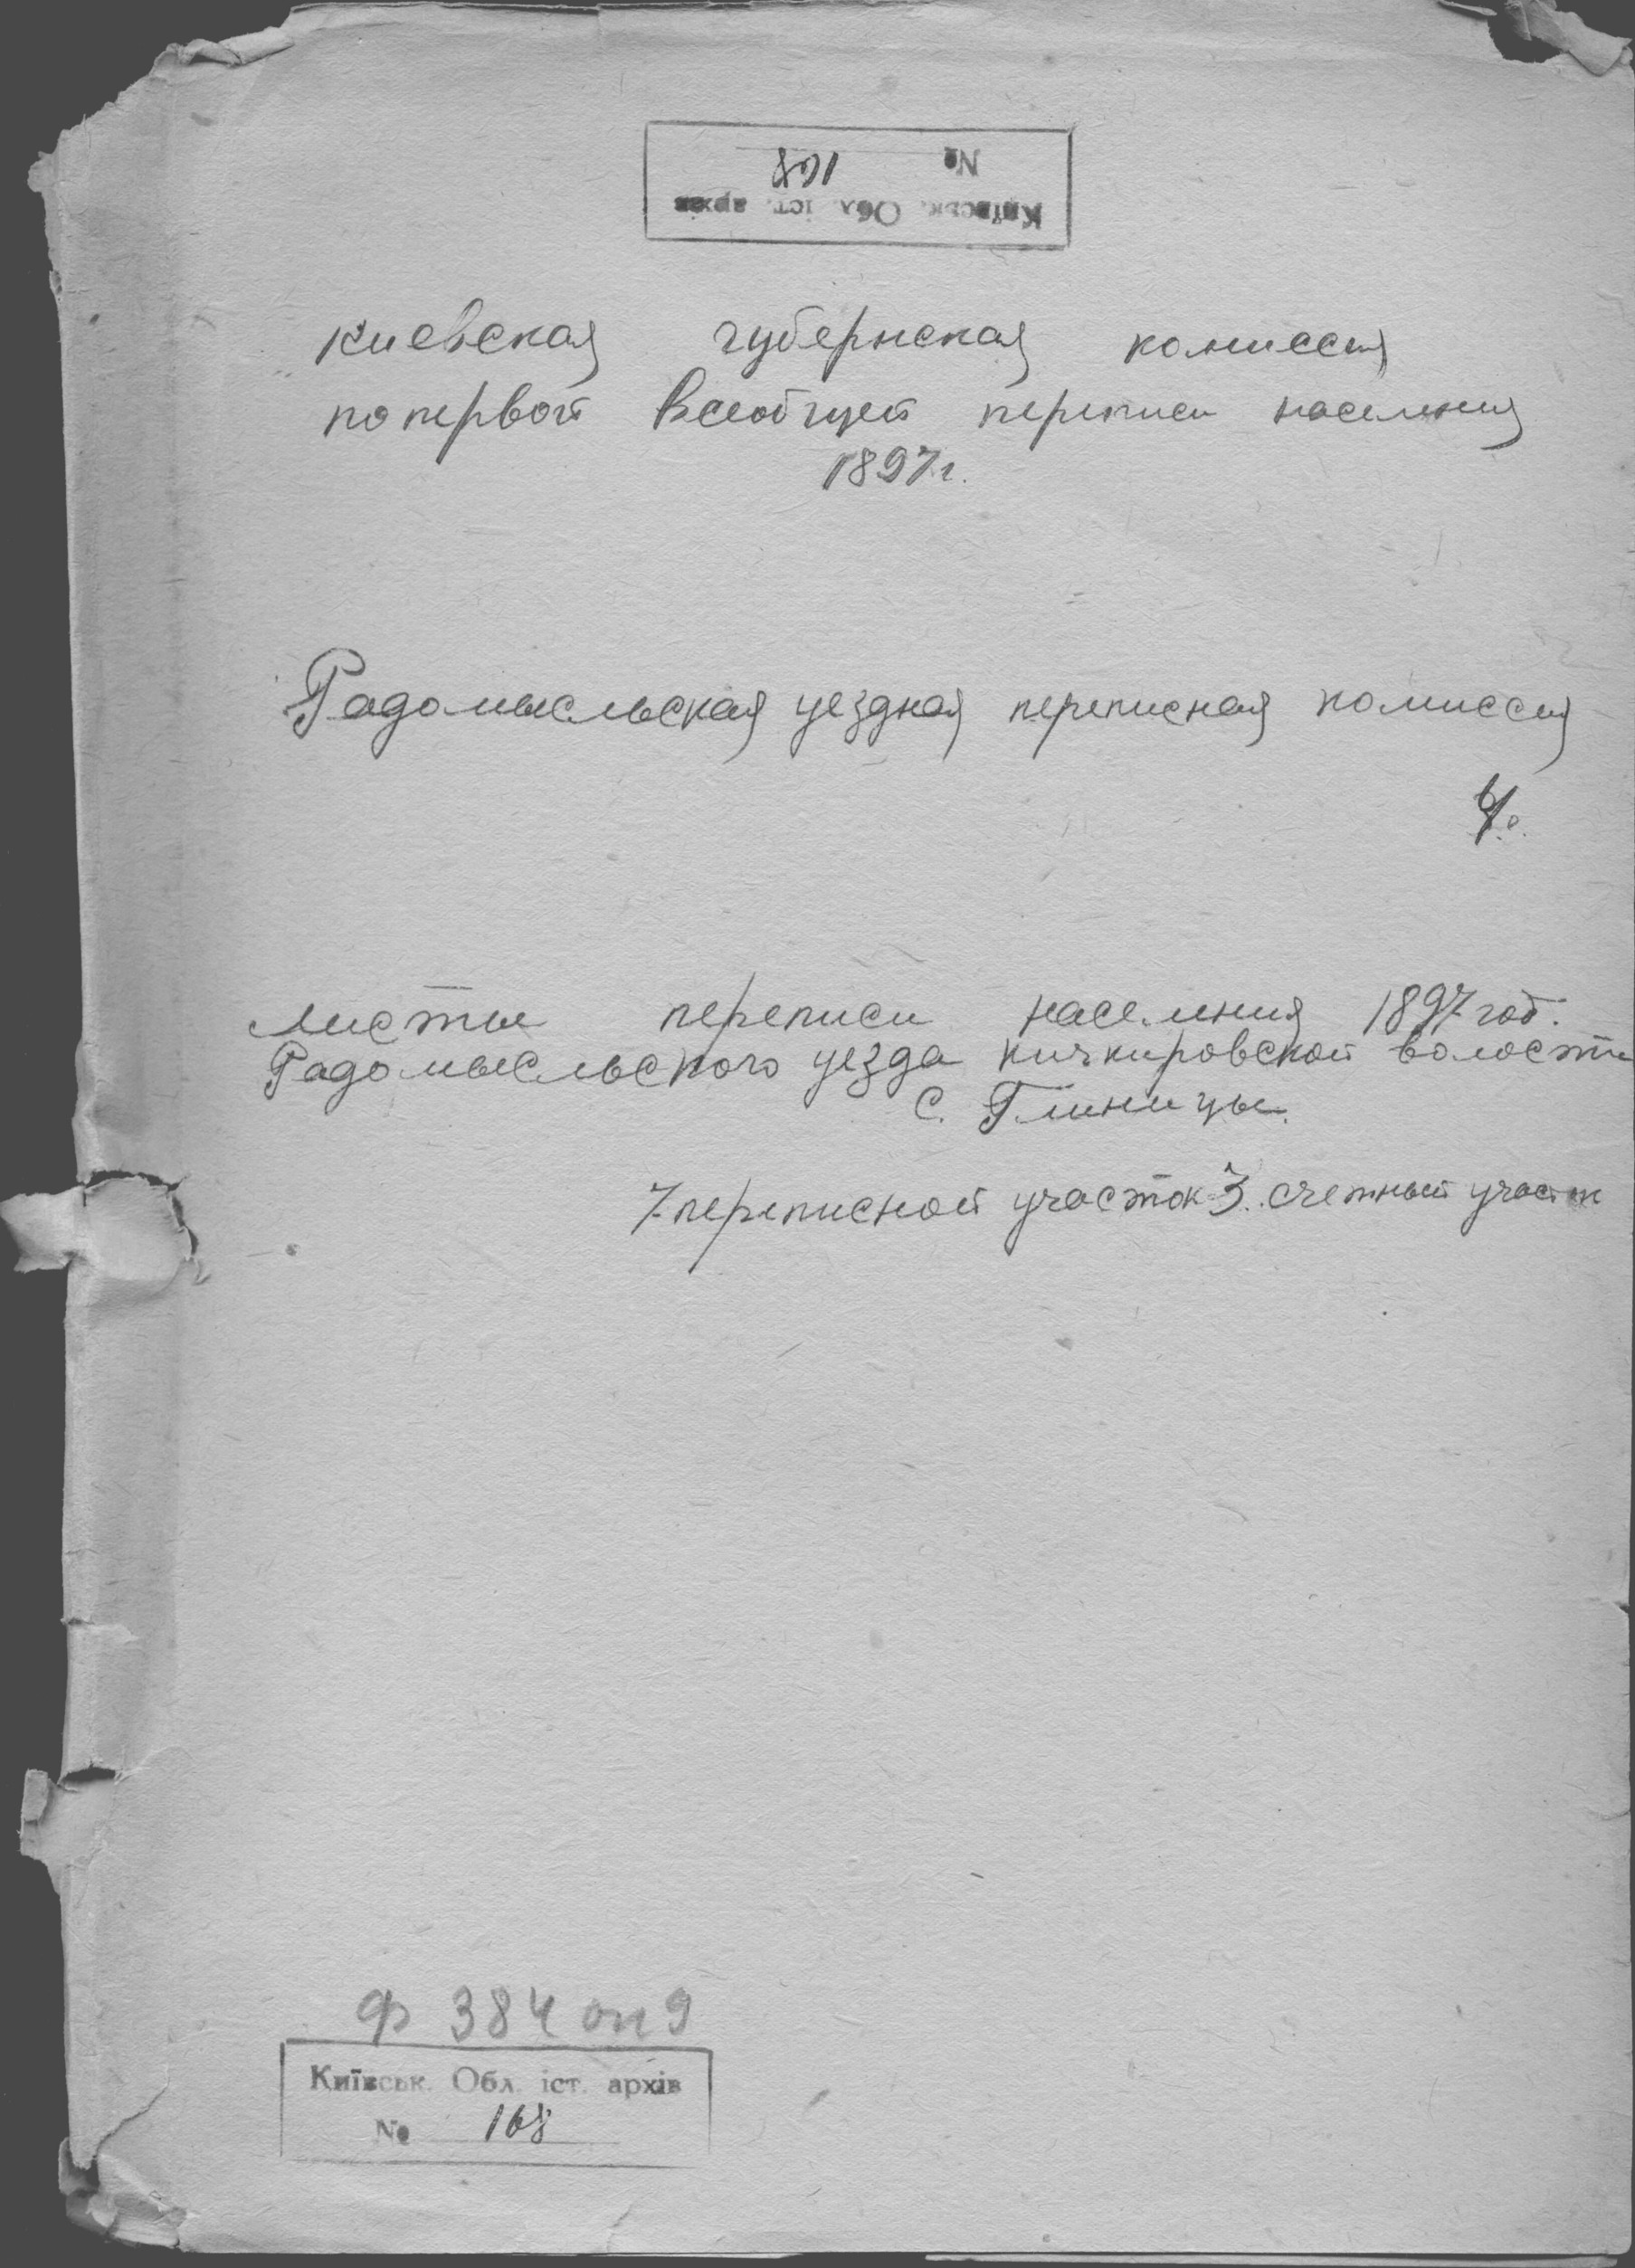 № 168
Київськ. Обл. іст. архів
киевская губернская комиссия
по первой всеобщей переписи населения
1897г.
Радомысльская уездная переписная комиссия
листы переписи населения 1897 год.
Радомысльского уезда кичкировской волости
с. Глиницы.
7 переписной участок 3. счетный участок
Ф 384 оп 9
Київськ. Обл. іст. архів
№ 168